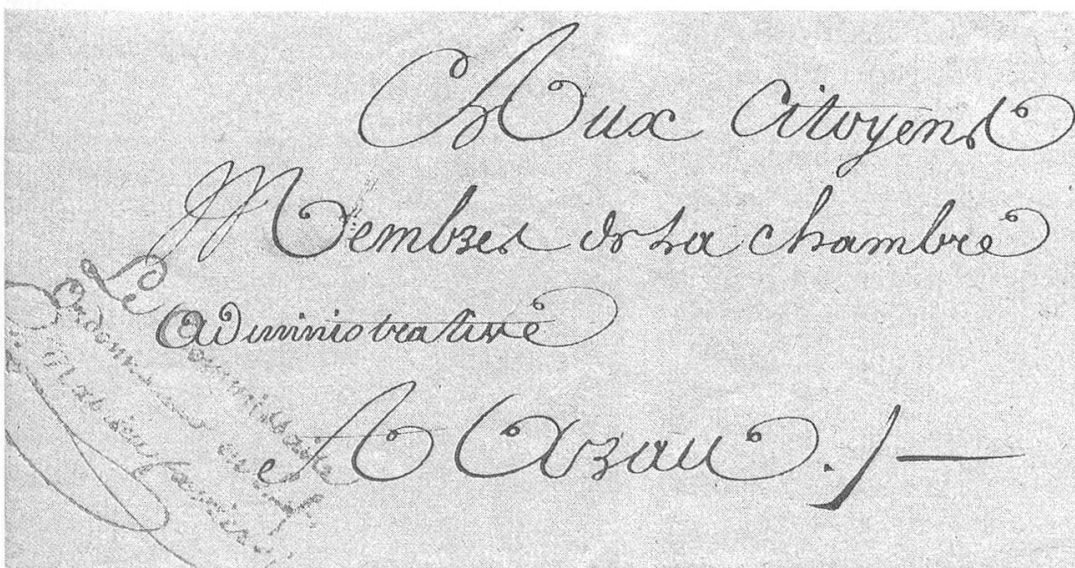 Aux Citoyens
Membres de La chambre
administrative
A Arau ./—
Le Commissaire
Ordonnateur en chef